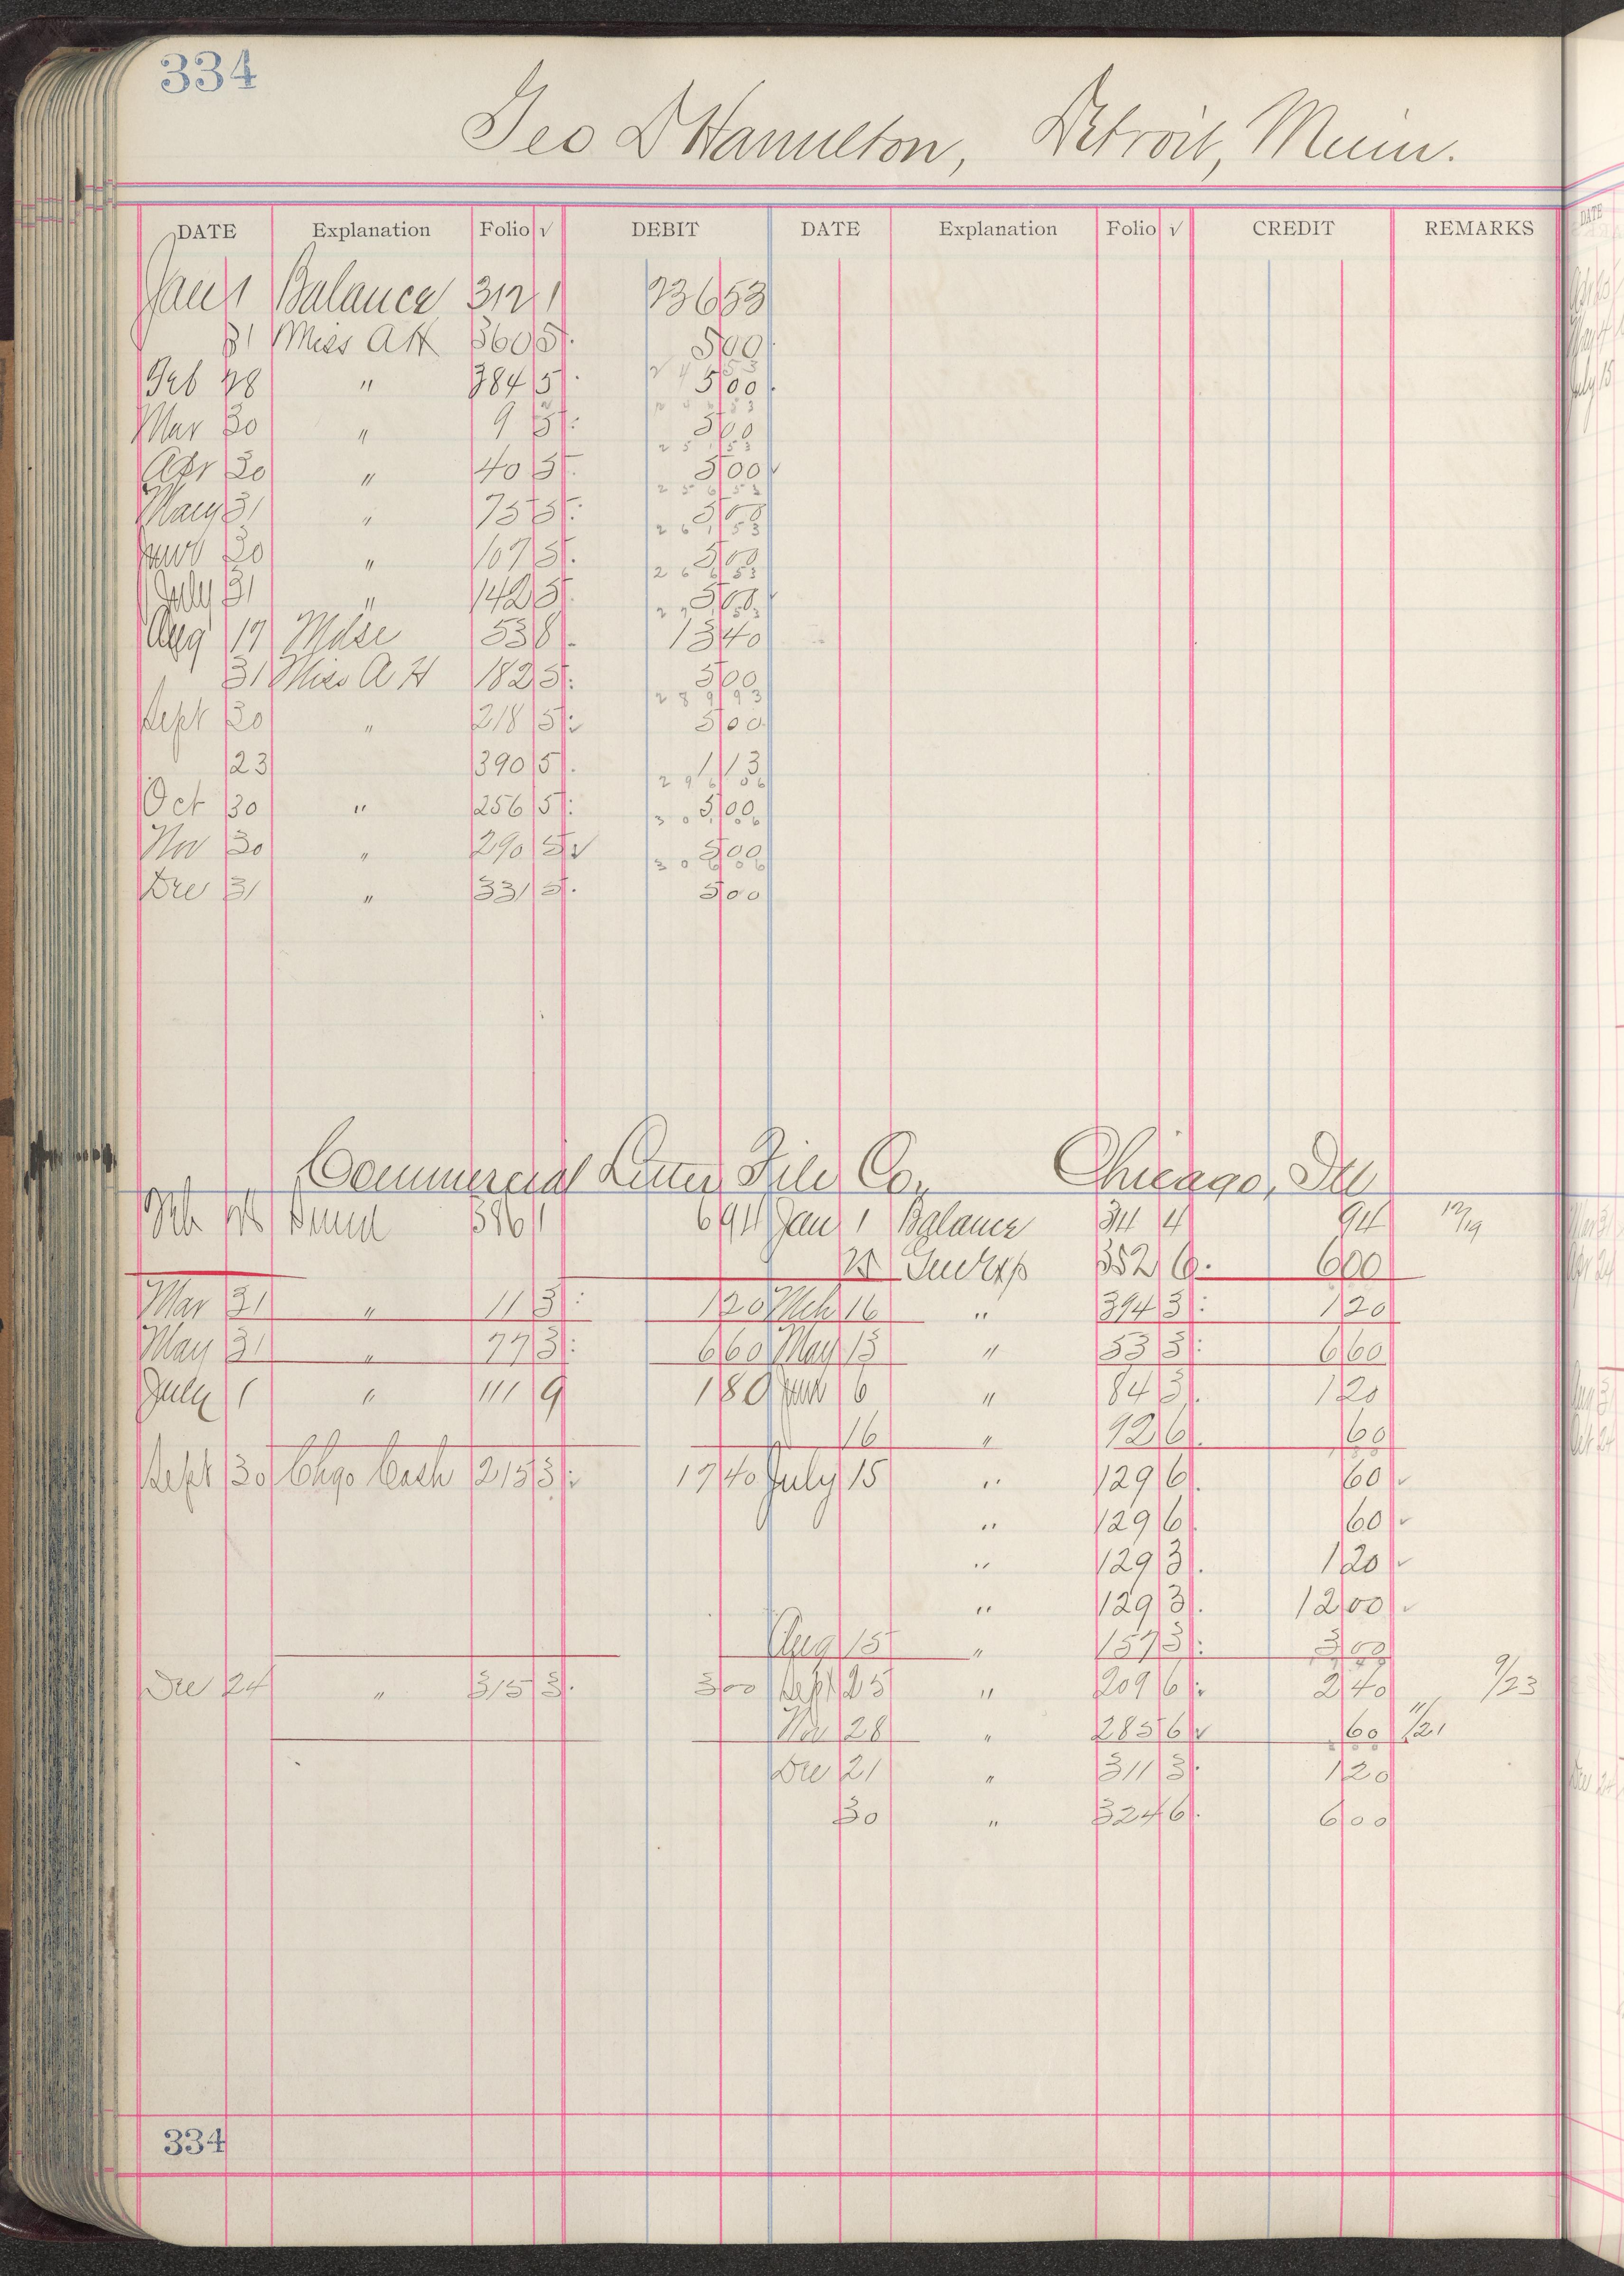 334
Geo D Hamilton, Detroit, Minn.
DATE Explanation Folio √ DEBIT DATE Explanation Folio √ CREDIT REMARKS
Jan 1 Balance 312 1 23653
31 Miss A H 360 5 500
Feb 28 " 384 5 500
Mar 30 " 9 5 500
Apr 30 " 40 5 500
May 31 " 75 5 500
June 30 " 107 5 500
July 31 " 142 5 500
Aug 17 Mdse 53 8 1340
31 Miss A H 182 5 500
28993
Sept 30 " 218 5 500
23 390 5 113
Oct 30 " 256 5 500
Nov 30 " 290 5 √ 500
Dec 31 " 331 5 500
Commercial Letter File Co, Chicago, Ill
Feb 386 1 694 Jan 1 Balance 34 4 94 12/19
352 6 600
Mar 31 " 11 3 120 Mch 16 " 394 3 120
May 31 " 77 3 660 May 13 " 53 3 660
July 1 " 111 9 180 June 6 " 84 3 120
16 " 92 6 60
Sept 30 Chgo Cash 215 3 1740 July 15 " 129 6 60
" 129 6 60
" 129 3 120
" 129 3 1200
Aug 15 " 157 3 300
Dec 24 " 315 3 300 Sept 25 " 209 6 240 9/23
Nov 28 " 285 6 √ 60 11/21
Dec 21 " 311 3 120
30 " 324 6 600
334